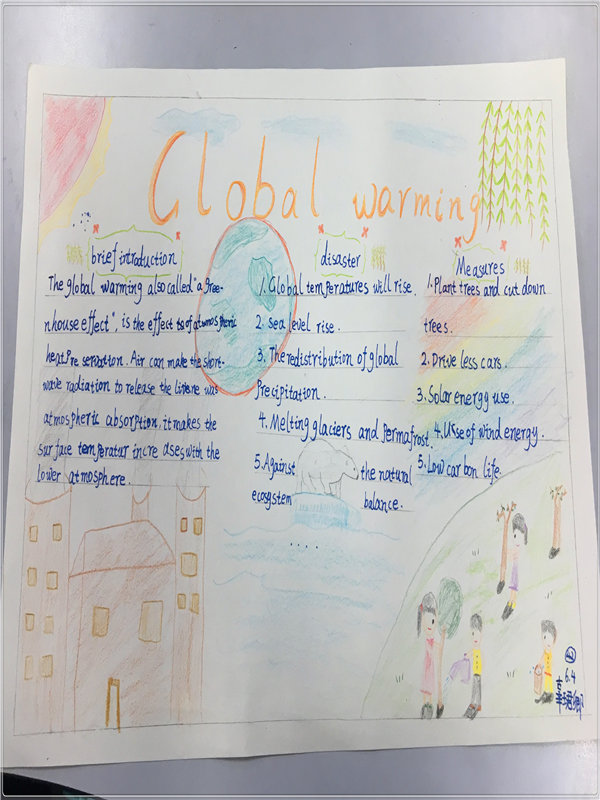 Global warming
brief introduction
The global warming also called "a gree-
nhouse effect". is the effect of atmospheric
heat Preservation. Air can make the short-
wave radiation to release the line was
atmospheric absorption. it makes the
surface temperatur increases with the
lower atmosphere.
disaster
1. Global temperatures will rise.
2. sea level rise.
3. The redistribution of global
Precipitation.
4. Melting glaciers and permafrost.
5. Against the natural
ecosystem balance.
....
Measures
1. Plant trees and cut down
trees.
2. Drive less cars.
3. Solar energy use.
4. Use of wind energy.
5. Low carbon life.
6.4